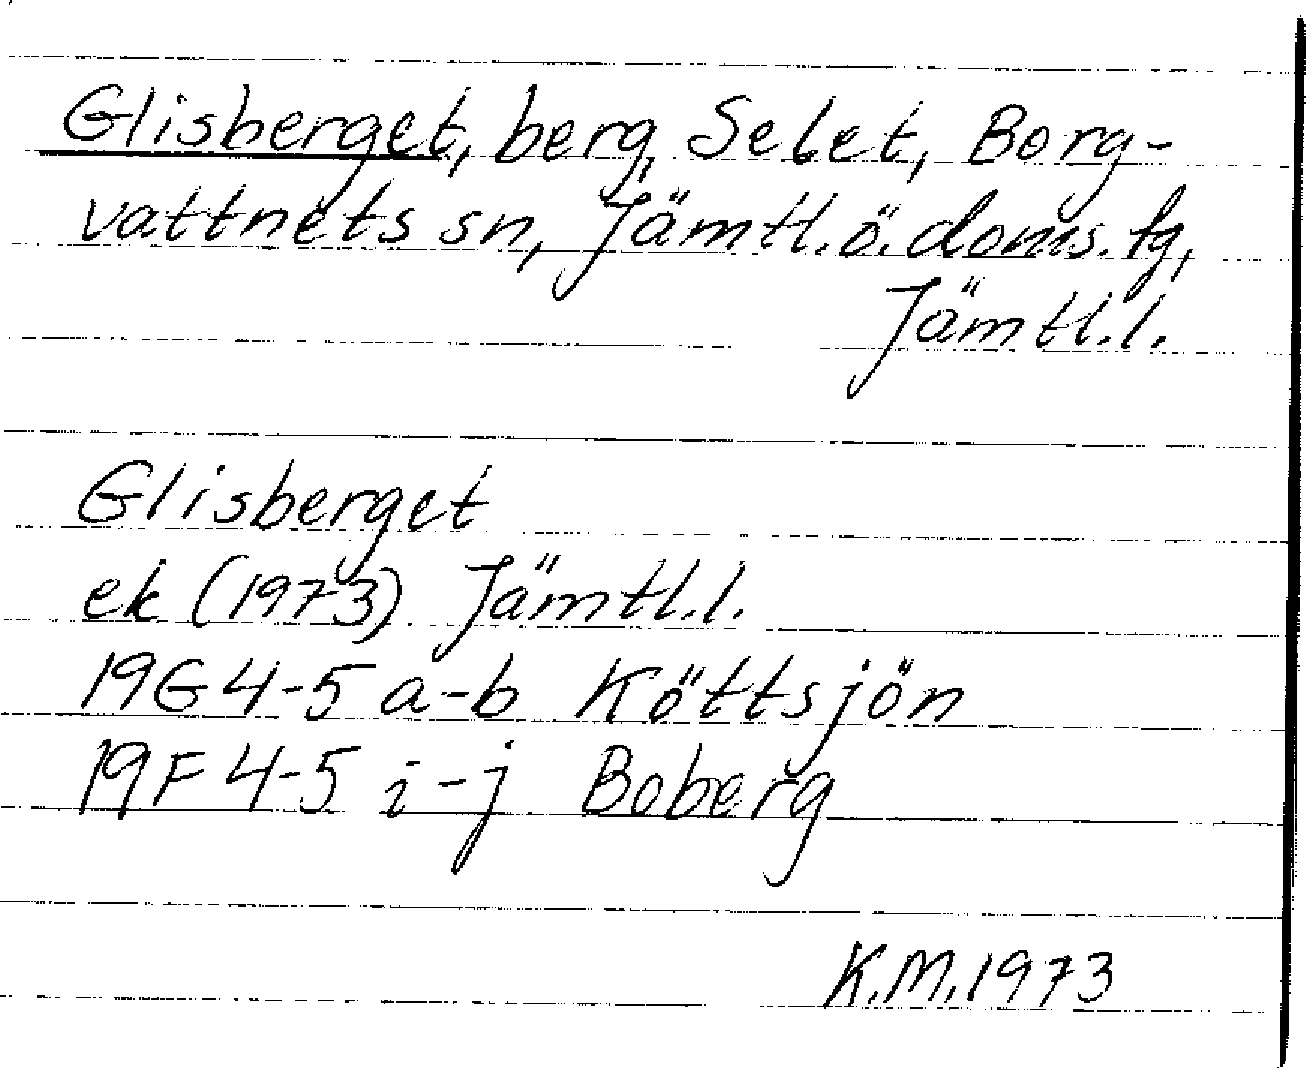 Glisberget, berg, Selet, Borg-
vattnets sn, Jämtl. ö. doms. tg,
Jämtl. l.
Glisberget
ek (1973) Jämtl. l.
19G 4-5 a-b Köttsjön
19F 4-5 i-j Boberg
K.M. 1973